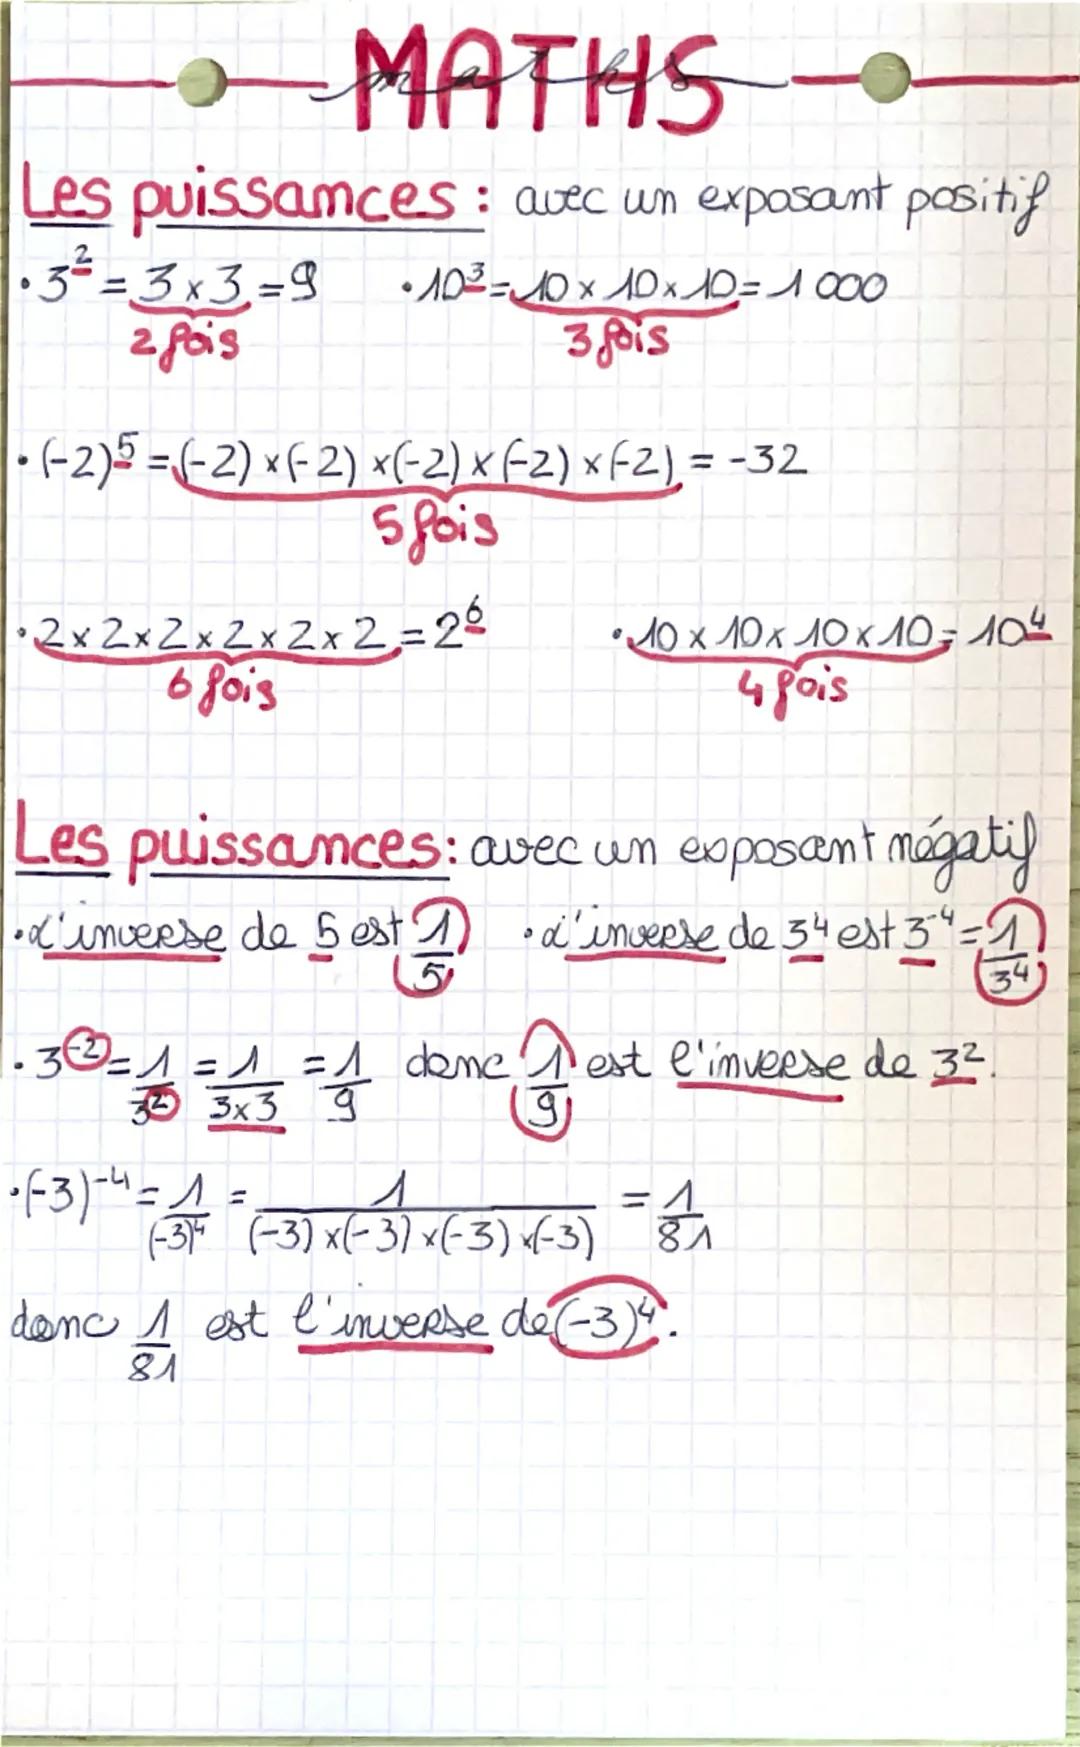 MATHS
maths
Les puissances : avec un exposant positif
• 3² = 3 × 3 = 9 • 10³ = 10 × 10 × 10 = 1 000
2 fois 3 fois
• (-2)⁵ = (-2) × (-2) × (-2) × (-2) × (-2) = -32
5 fois
• 2 × 2 × 2 × 2 × 2 × 2 = 2⁶ • 10 × 10 × 10 × 10 = 10⁴
6 fois 4 fois
Les puissances : avec un exposant négatif
• L'inverse de 5 est 1/5 • L'inverse de 3⁴ est 3⁻⁴ = 1/3⁴
• 3⁻² = 1/3² = 1/3×3 = 1/9 donc 1/9 est l'inverse de 3².
• (-3)⁻⁴ = 1/(-3)⁴ = 1/(-3) × (-3) × (-3) × (-3) = 1/81
donc 1/81 est l'inverse de (-3)⁴.